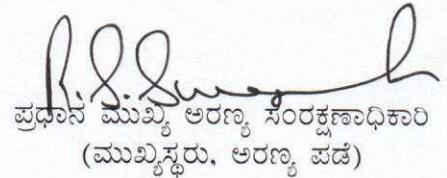 ಪ್ರಧಾನ ಮುಖ್ಯ ಅರಣ್ಯ ಸಂರಕ್ಷಣಾಧಿಕಾರಿ
(ಮುಖ್ಯಸ್ಥರು, ಅರಣ್ಯ ಪಡೆ)